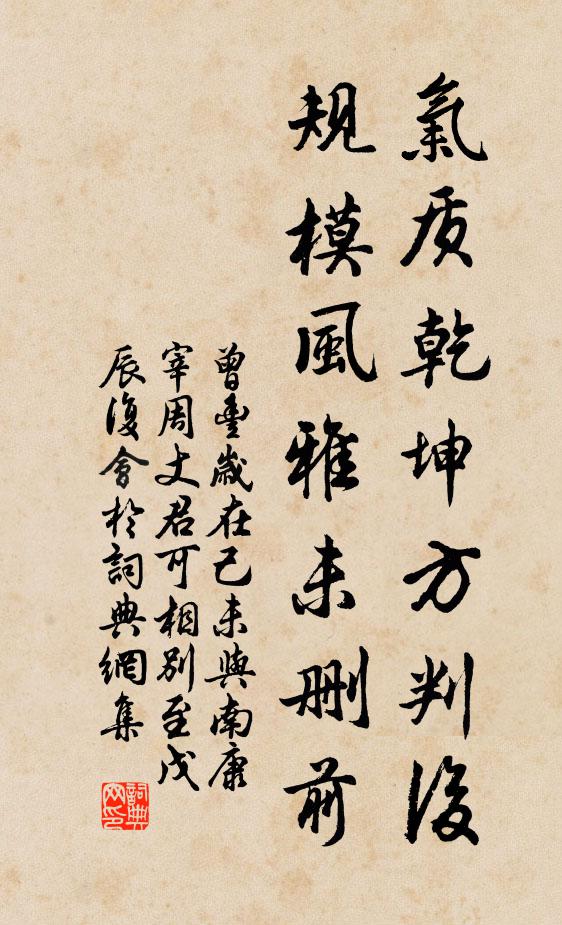 氣质乾坤方判後
規模風雅未删前
曾豊歲在己未與南康
宰周丈君可相別至戊
辰復會於詞典網集
詞典网印